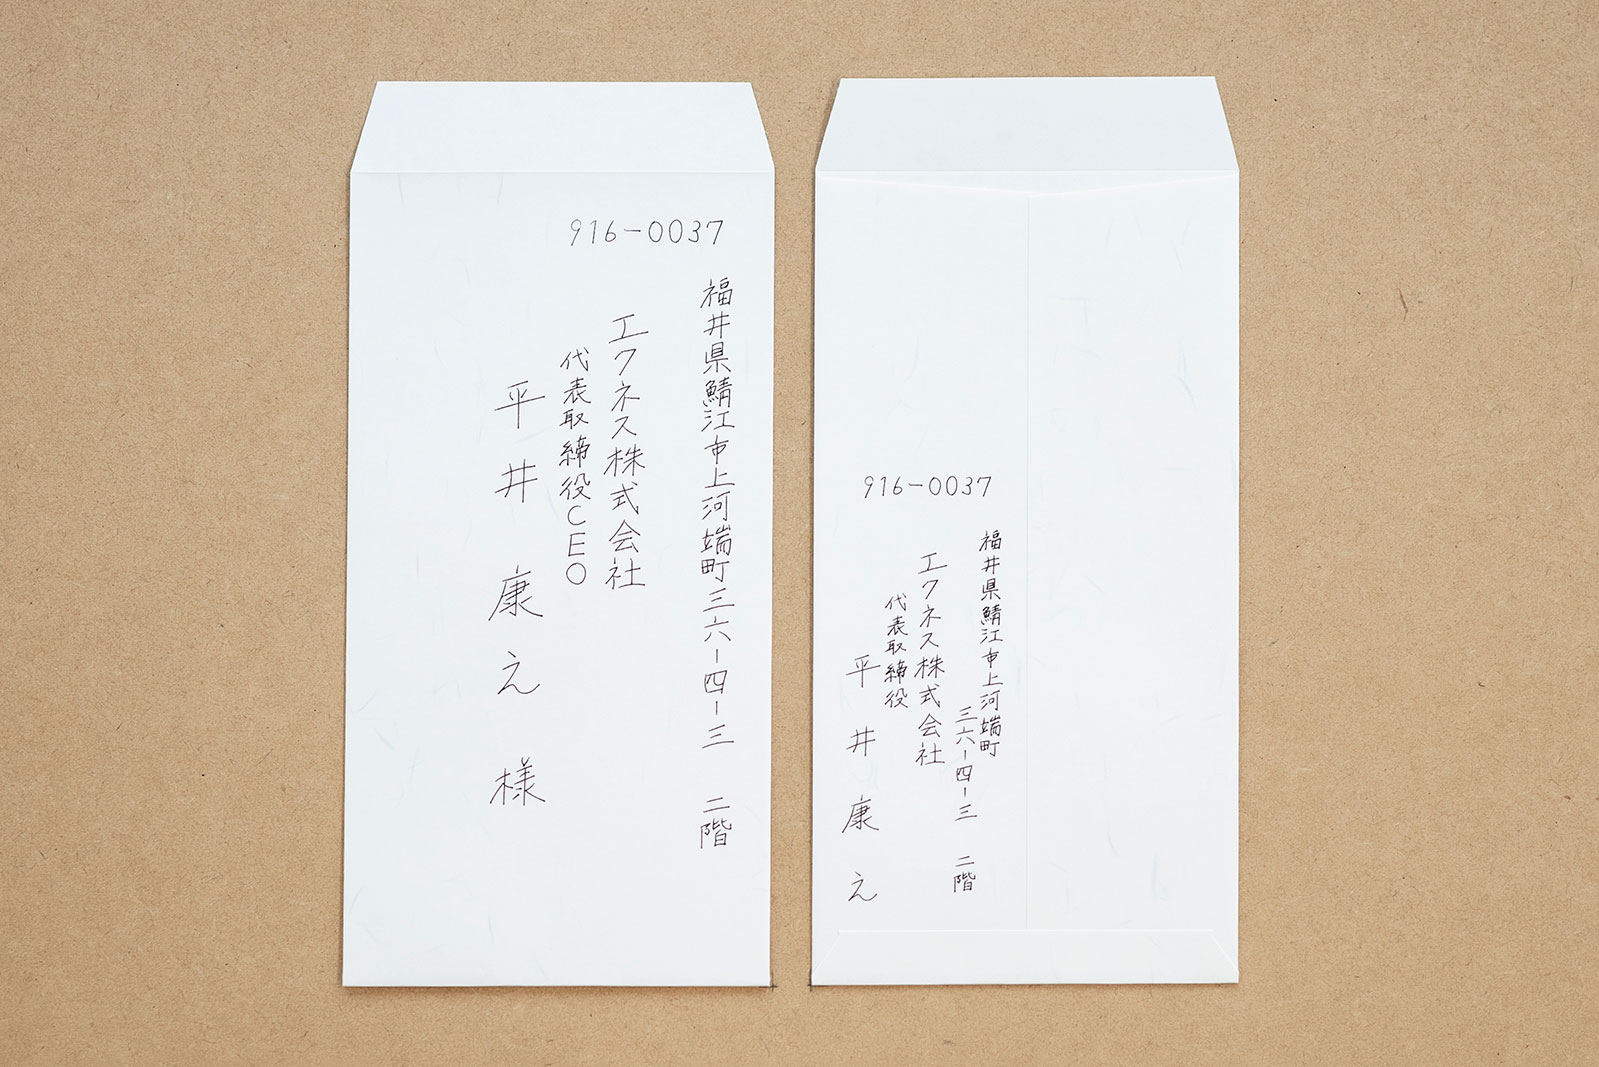 916-0037
福井県鯖江市上河端町三六-四-三 二階
エクネス株式会社
代表取締役CEO
平井康之様
916-0037
福井県鯖江市上河端町
三六-四-三 二階
エクネス株式会社
代表取締役
平井康之